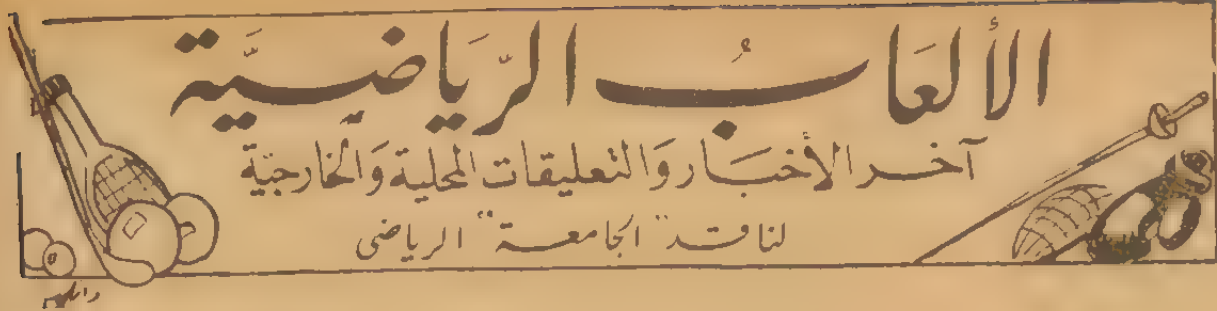 الألعَابُ الرّيَاضيَّة
آخر الأخبَار وَالتعليقات المحلية وَالخارجيَّة
لناقد "الجامعة" الرياضى